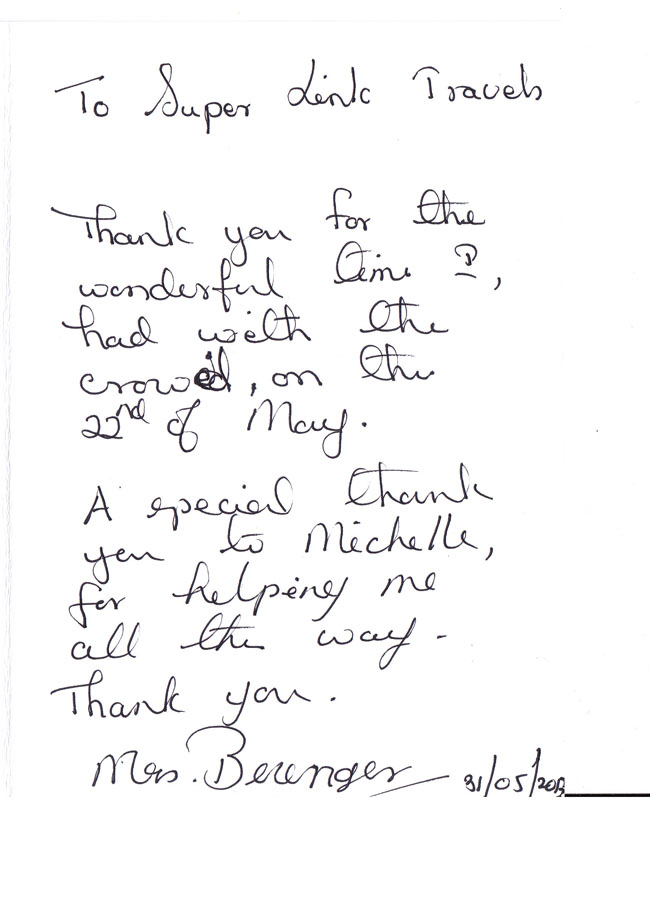 To Super Link Travels
Thank you for the
wonderful time I,
had with the
crowd, on the
22nd of May.
A special thank
you to Michelle,
for helping me
all the way.
Thank you.
Mrs. Berenger 31/05/2013